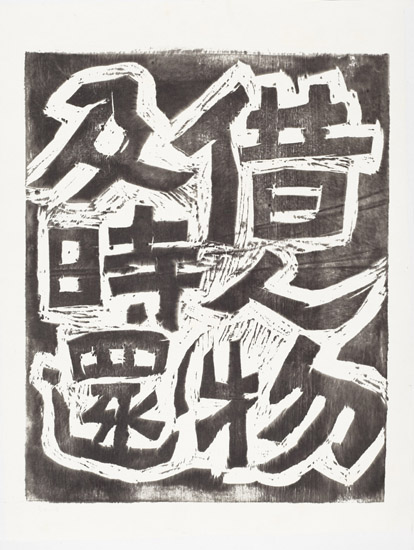 借人物
及時還